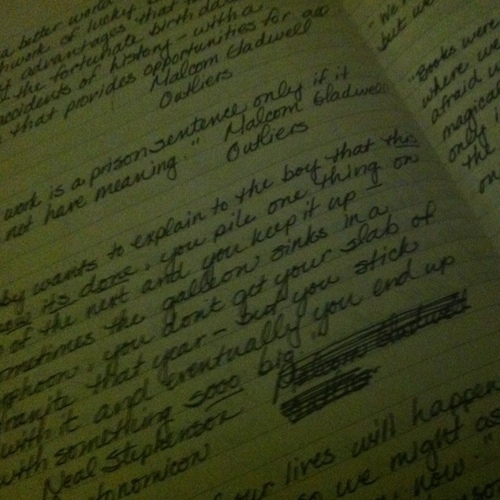 a better world
work of lucky
advantages that
the fortunate birth dat
accidents of history - with a
that provides opportunities for all
Malcom Gladwell
Outliers
work is a prison sentence only if it
not have meaning." Malcom Gladwell
Outliers
by wants to explain to the boy that this
its done, you pile one thing on
of the next and you keep it up -
ometimes the galleon sinks in a
phoon, you don't get your slab of
ranite that year - but you stick
with it and eventually you end up
with something sooo big.
Neal Stephenson
tonomicon
our lives will happen
so we might as
now."
- We
but we
"Books were
where w
afraid w
magical
only
the
on